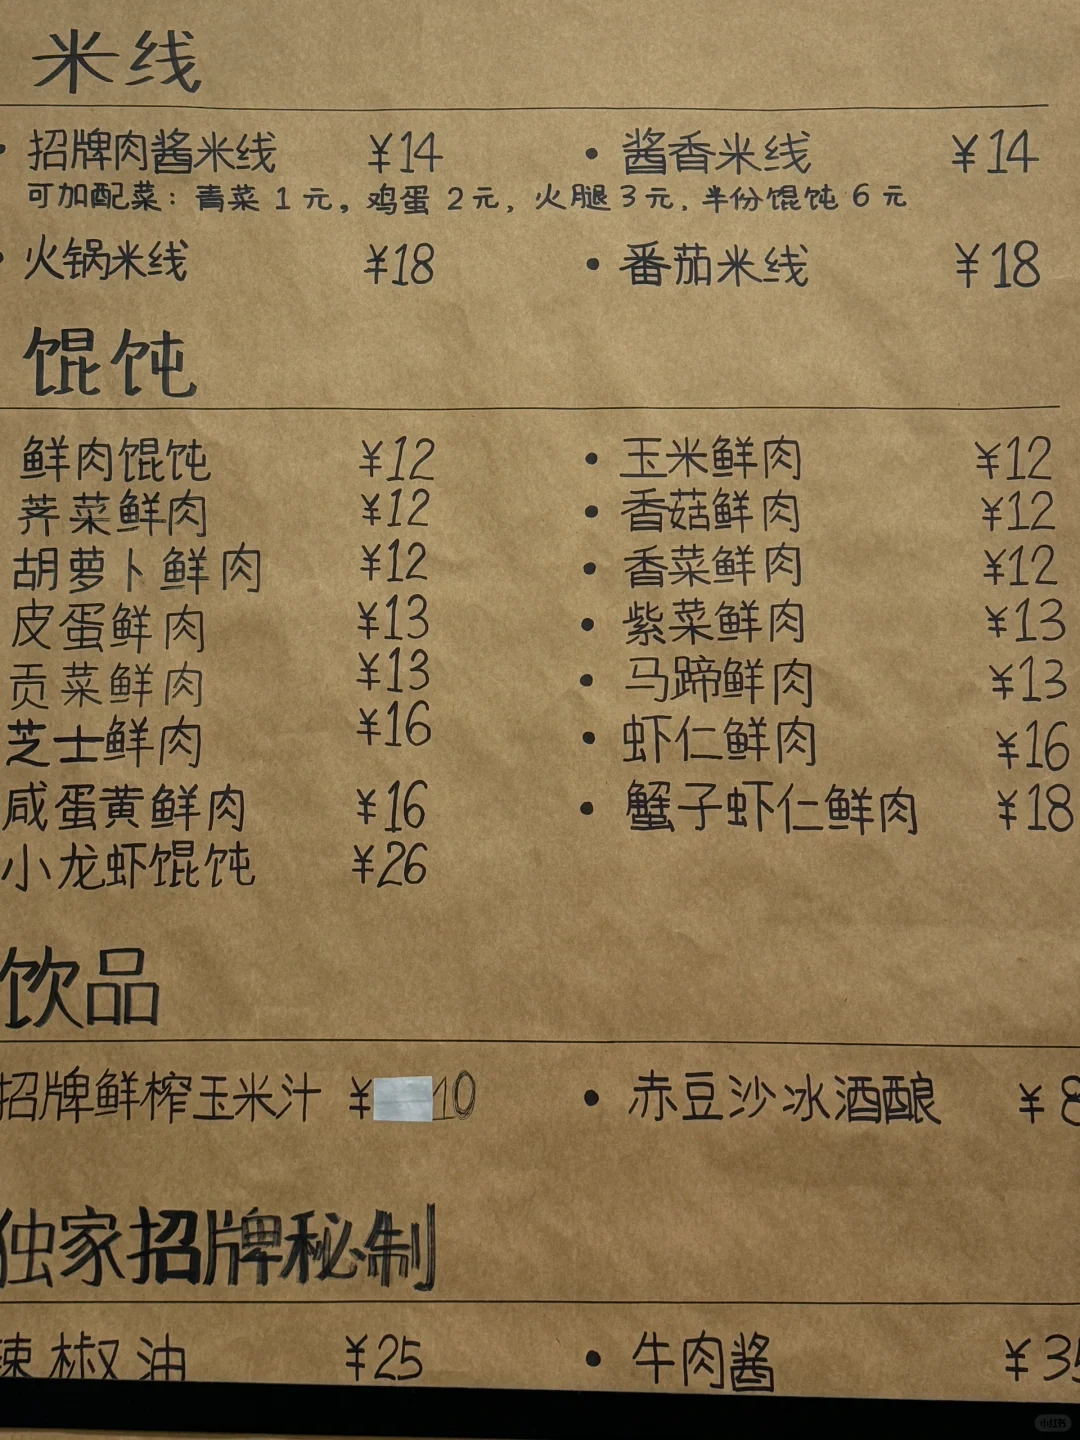 米线
• 招牌肉酱米线 ¥14 • 酱香米线 ¥14
可加配菜：青菜1元，鸡蛋2元，火腿3元，半份馄饨6元
• 火锅米线 ¥18 • 番茄米线 ¥18
馄饨
鲜肉馄饨 ¥12 • 玉米鲜肉 ¥12
荠菜鲜肉 ¥12 • 香菇鲜肉 ¥12
胡萝卜鲜肉 ¥12 • 香菜鲜肉 ¥12
皮蛋鲜肉 ¥13 • 紫菜鲜肉 ¥13
贡菜鲜肉 ¥13 • 马蹄鲜肉 ¥13
芝士鲜肉 ¥16 • 虾仁鲜肉 ¥16
咸蛋黄鲜肉 ¥16 • 蟹子虾仁鲜肉 ¥18
小龙虾馄饨 ¥26
饮品
招牌鲜榨玉米汁 ¥10 • 赤豆沙冰酒酿 ¥8
独家招牌秘制
辣椒油 ¥25 • 牛肉酱 ¥35
小红书